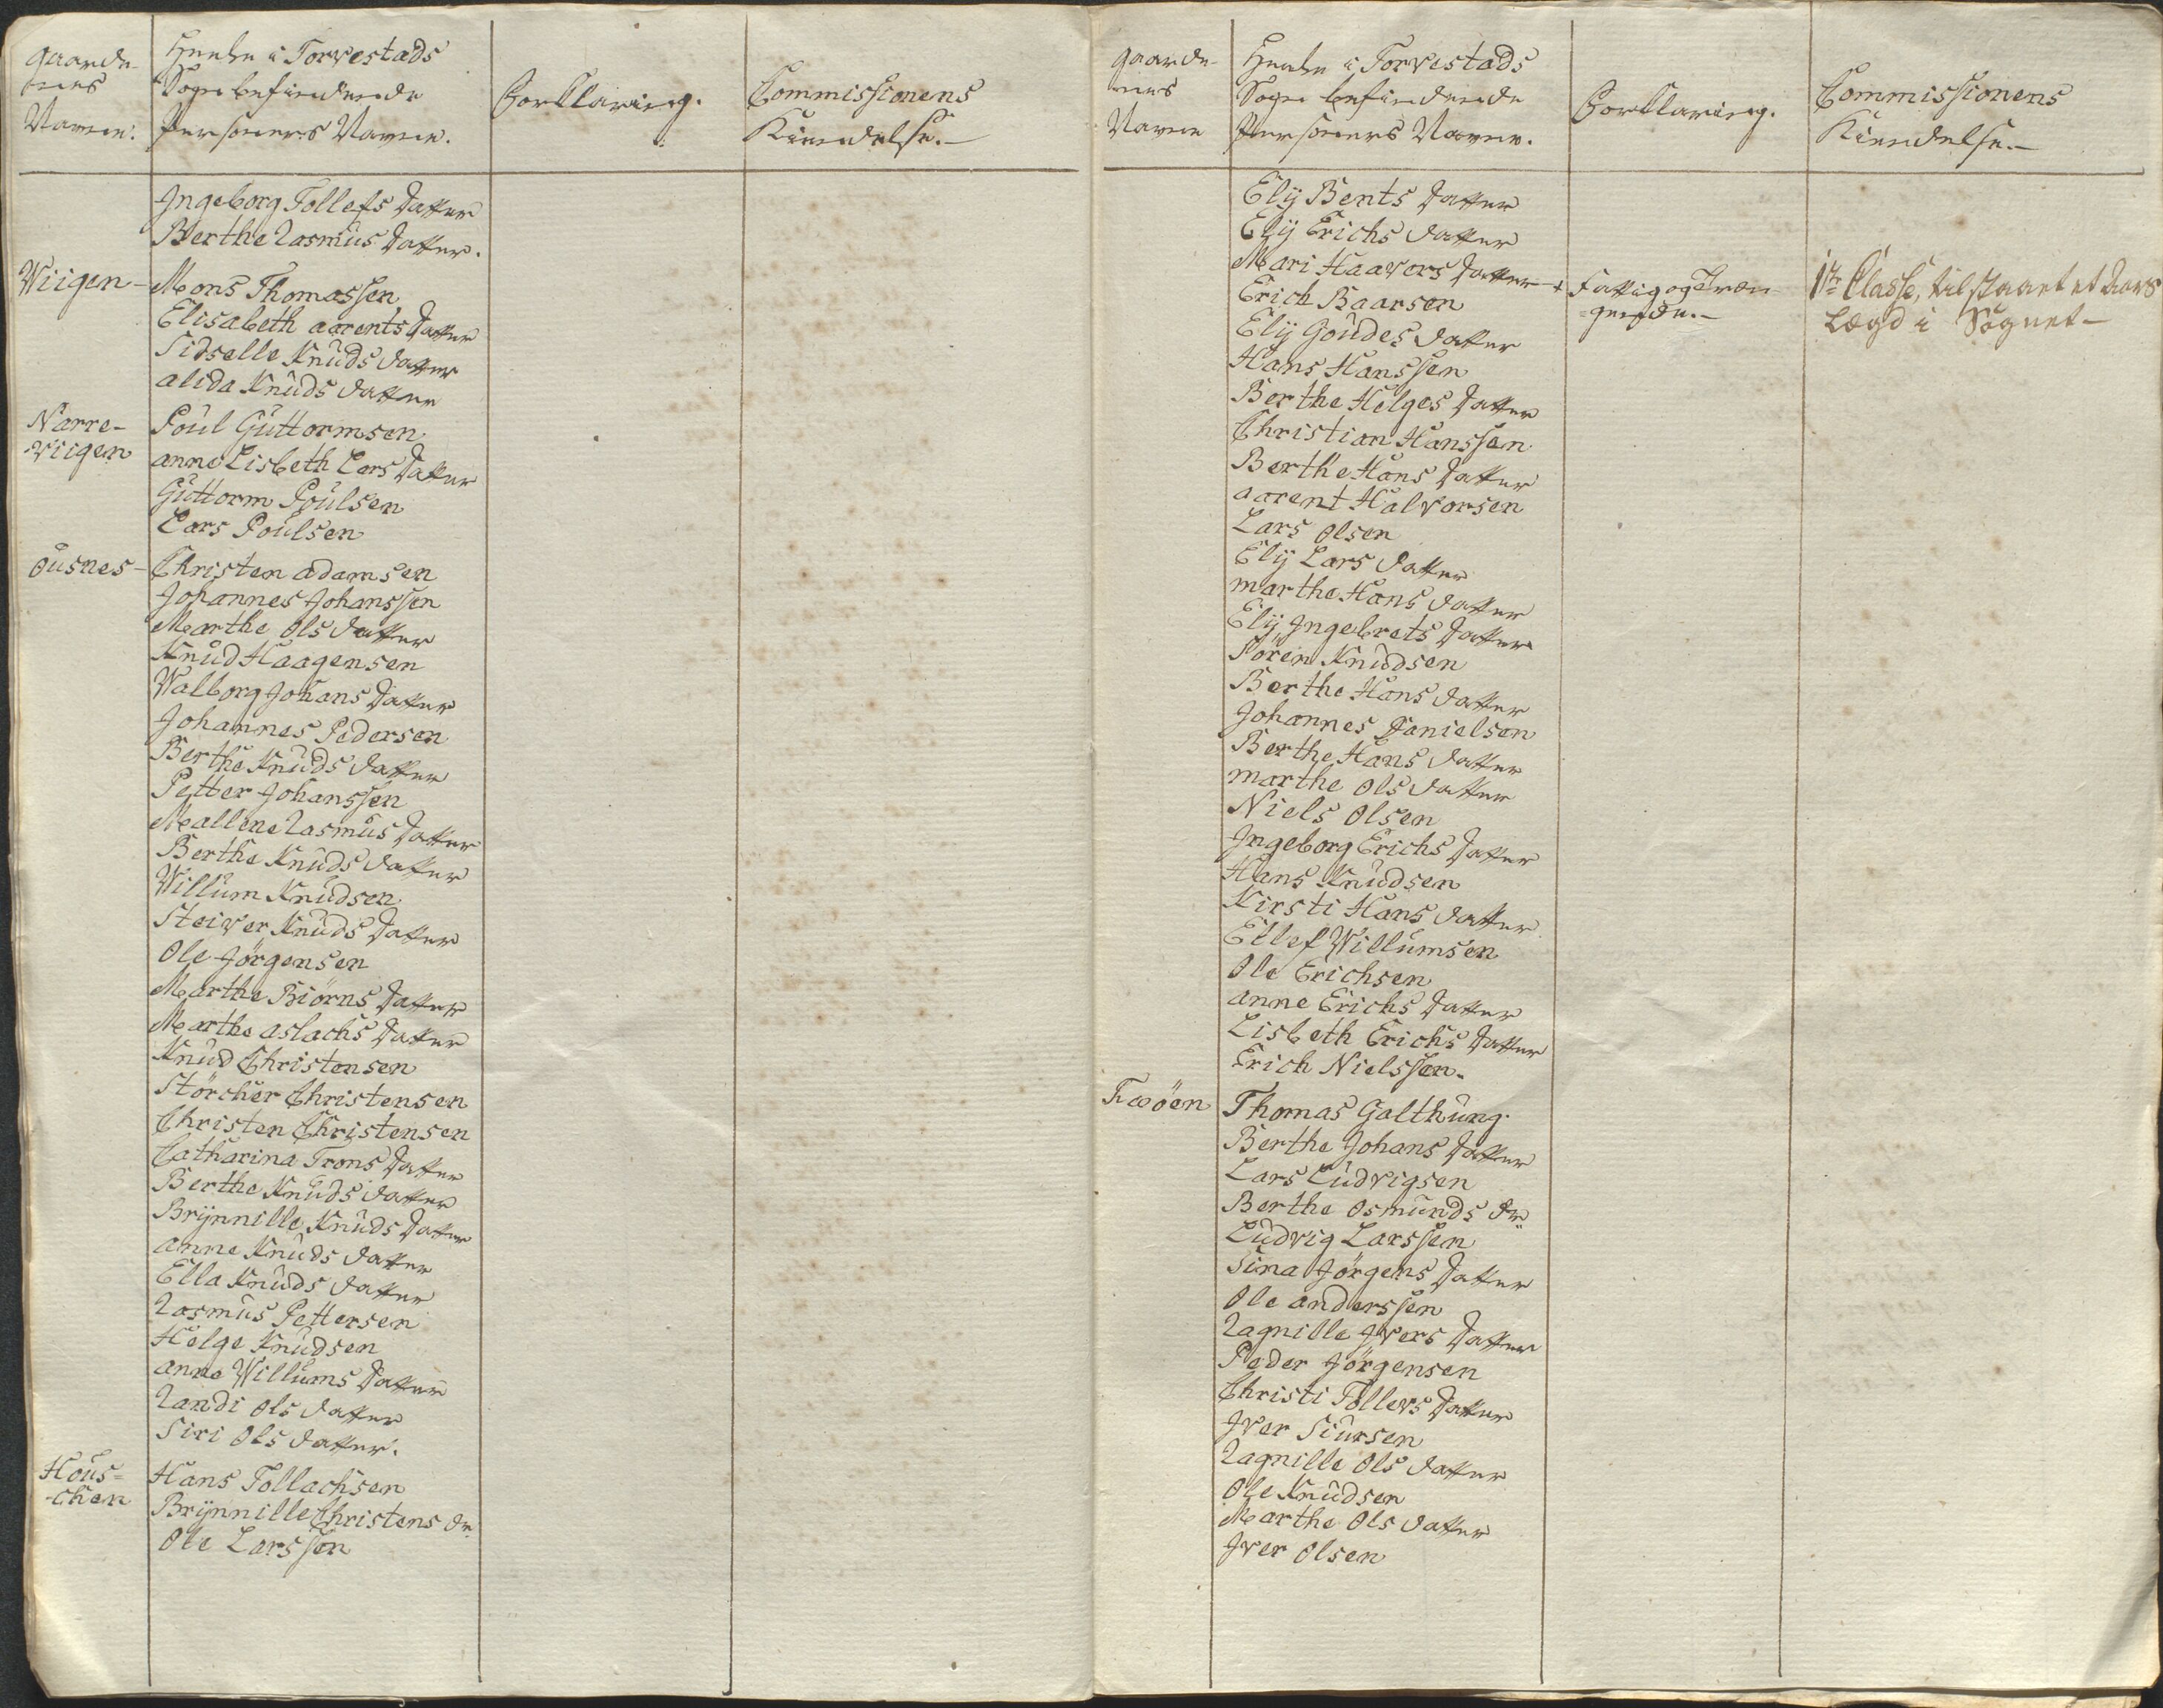 Gaarde-
nes
Navne.
Heele i Torvestads
Sogn befindende
Personers Navne.
Forklaring.
Commissionens
Kiendelse.-
Ingeborg Tollefs Datter
Berthe Rasmus Datter.
Wiigen-
Mons Thomassen
Elisabeth Aarents Datter
Sidselle Knuds Datter
Alida Knuds Datter
Narre-
-wiigen
Poul Guttormsen
Anne Lisbeth Lars Datter
Guttorm Poulsen
Lars Poulsen
Ousnes-
Christen Adamsen
Johannes Johanssen
Marthe Ols Datter
Knud Haagensen
Walborg Johans Datter
Johannes Pedersen
Berthe Knuds Datter
Petter Johanssen
Mallene Rasmus Datter
Berthe Knuds Datter
Willum Knudsen
Steiwer Knuds Datter
Ole Jörgensen
Marthe Biörns Datter
Marthe Aslachs Datter
Knud Christensen
Störcher Christensen
Christen Christensen
Catharina Trons Datter
Berthe Knuds Datter
Brÿnnille Knuds Datter
Anne Knuds Datter
Ella Knuds Datter
Rasmus Pettersen
Helge Knudsen
Anne Willums Datter
Randi Ols Datter
Siri Ols Datter.
Hous=
-chen
Hans Tollachsen
Brÿnnille Christens Dr.
Ole Larssen
Gaarde-
nes
Navne
Heele i Torvestads
Sogn befindende
Personers Navne.
Forklaring.
Commissionens
Kiendelse.-
Elÿ Bents Datter
Elÿ Erichs Datter
Mari Haavors Datter
Erich Baarsen
+ Fattig og Træn-
=gende.-
1te Classe, tilstaaet et Aars
Lægd i Sognet-
Elÿ Goudes Datter
Hans Hanssen
Berthe Helges Datter
Christian Hanssen
Berthe Hans Datter
Aarent Halvorsen
Lars Olsen
Elÿ Lars Datter
Marthe Hans Datter
Elÿ Ingebrets Datter
Sören Knudsen
Berthe Hans Datter
Johannes Danielsen
Berthe Hans Datter
Marthe Ols Datter
Niels Olsen
Ingeborg Erichs Datter
Hans Knudsen
Kirsti Hans Datter
Ellef Willumsen
Ole Erichsen
Anne Erichs Datter
Lisbeth Erichs Datter
Erich Nielssen.
Fæöen
Thomas Galthung
Berthe Johans Datter
Lars Ludvigsen
Berthe Osmunds Dr.
Ludvig Larssen
Sina Jörgens Datter
Ole Anderssen
Ragnille Ivers Datter
Peder Jörgensen
Christi Tollevs Datter
Iver Siursen
Ragnille Ols Datter
Ole Knudsen
Marthe Ols Datter
Iver Olsen